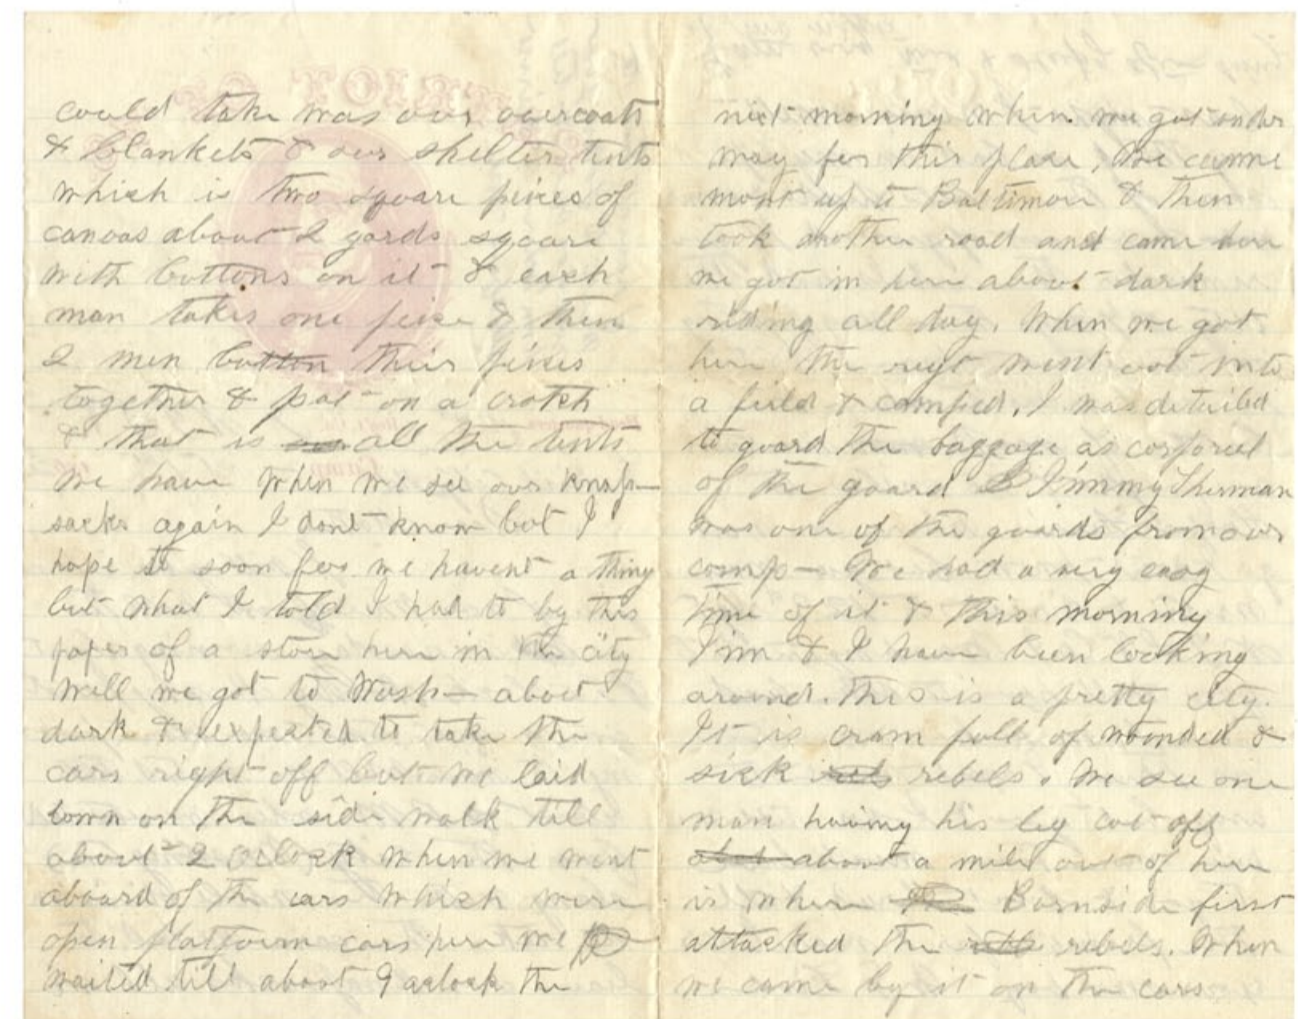 could take was our overcoats
& blankets & our shelter tents
which is two square pieces of
canvas about 2 yards square
with buttons on it & each
man takes one peice & then
2 men button their pieces
together & put on a crotch
& that is all the tents
We have When we see our knap-
sacks again I dont know but I
hope to soon for we havent a thing
but what I told I had to by this
paper of a store here in the city
Well we got to Wash- about
dark & expected to take the
cars right off but we laid
down on the side walk till
about 2 oclock when we went
aboard of the cars which were
open platform cars here we
waited till about 9 oclock the
next morning when we got under
way for this place, We came
most up to Baltimore & then
took another road and came here
we got in here about dark
riding all day. When we got
here the regt went out into
a field & camped. I was detailed
to guard the baggage as corporel
of the guard & Jimmy Sherman
was one of the guards from our
comp- We had a very easy
time of it & this morning
Jim & I have been looking
around. this is a pretty city.
It is cram full of wounded &
sick rebels. We see one
man having his leg cut off
about a mile out of here
is where Burnside first
attacked the rebels. When
we came by it on the cars